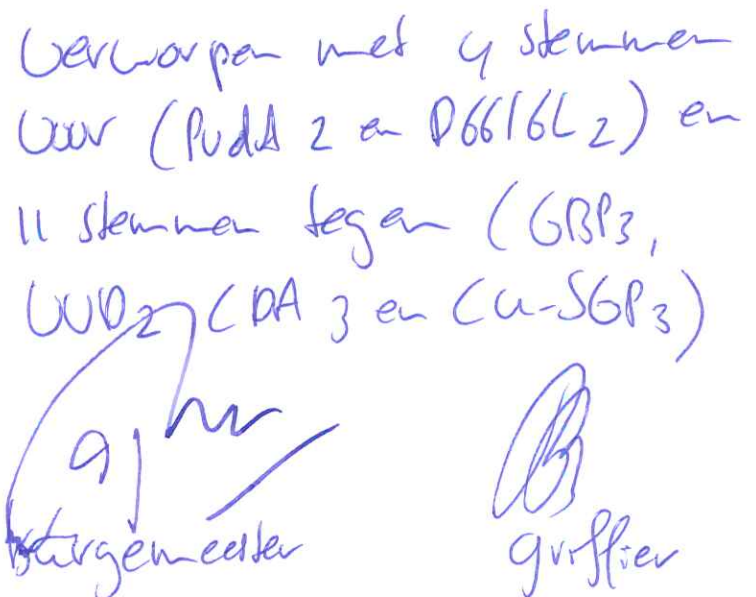 Verworpen met 4 stemmen
voor (PvdA 2 en D66/GL 2) en
11 stemmen tegen (GBP3,
VVD2, CDA 3 en CU-SGP3)
burgemeester griffier